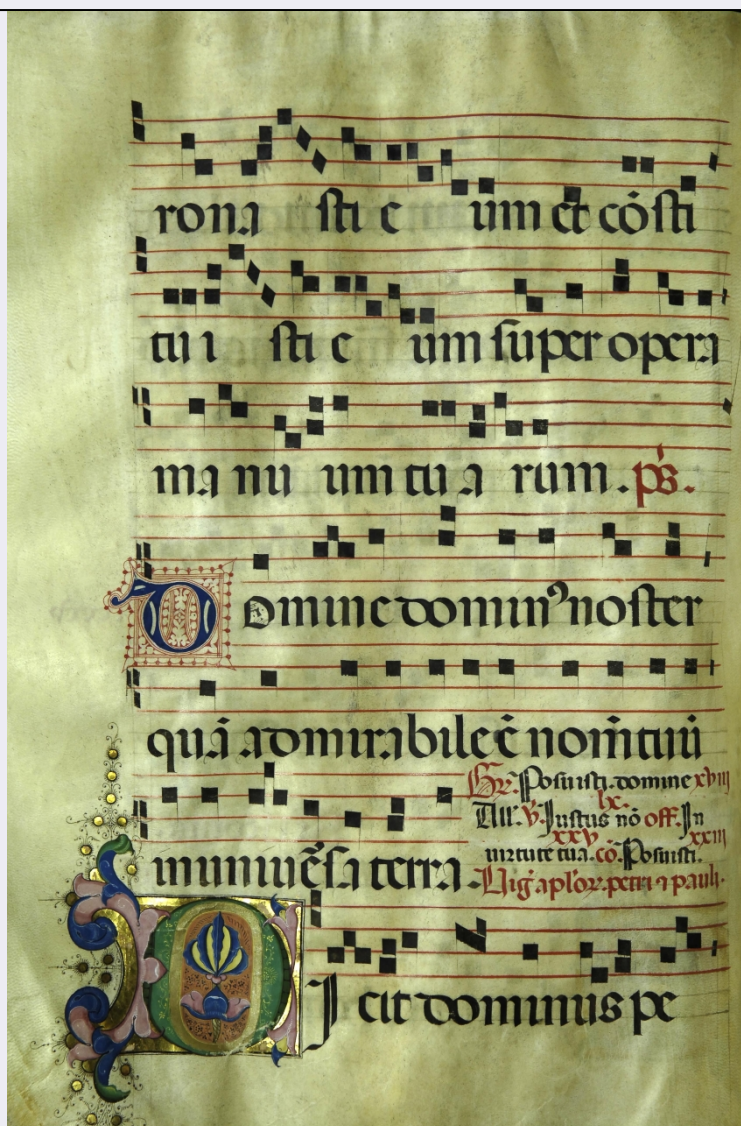 rona sti e um et cõsti
tu i sti e um super opera
ma nu um tu a rum. ps̃.
Domine dominꝰ noster
quã admirabile ẽ nom̃ tuũ
in uniuẽrsa terra.
Gr̃. Posuisti. domine xviii
All. ṽ. Iustus nõ lx. off. In
xxv xxiii
uirtute tua. cõ. Posuisti.
Vig̃ aplor̃. petri ⁊ pauli.
Dicit dominus pe